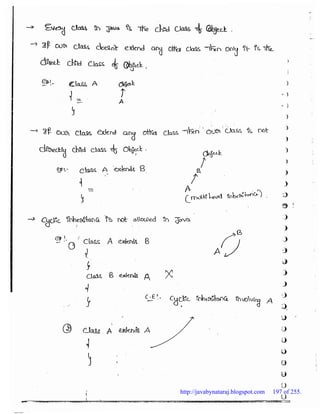 → Every class in Java is the child class of Object.
→ If our class doesn't extend any other class then only it is the
direct child class of Object.
Ex:- class A Object
{ ↑
= A
}
→ If our class extend any other class then our class is not
directly child class of Object.
Ex:- class A extends B Object
{ B
= A
} (multi level inheritance)
→ Cyclic inheritance is not allowed in Java.
Ex:- ① class A extends B
{ B
} A
class B extends A ✗
{
} C.E:- Cyclic inheritance involving A
② class A extends A
{
}
http://javabynataraj.blogspot.com 197 of 255.